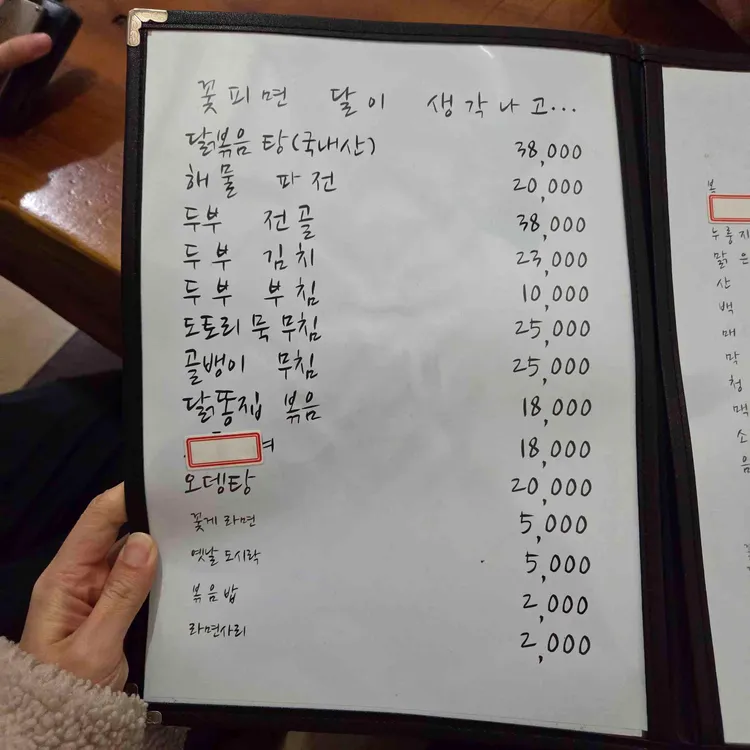 꽃피면 달이 생각나고...
닭볶음탕(국내산) 38,000
해물 파전 20,000
두부 전골 38,000
두부 김치 23,000
두부 부침 10,000
도토리묵 무침 25,000
골뱅이 무침 25,000
닭똥집 볶음 18,000
18,000
오뎅탕 20,000
꽃게 라면 5,000
옛날 도시락 5,000
볶음밥 2,000
라면사리 2,000
누룽지
맑은
산
백
매
막
청
맥
소
음